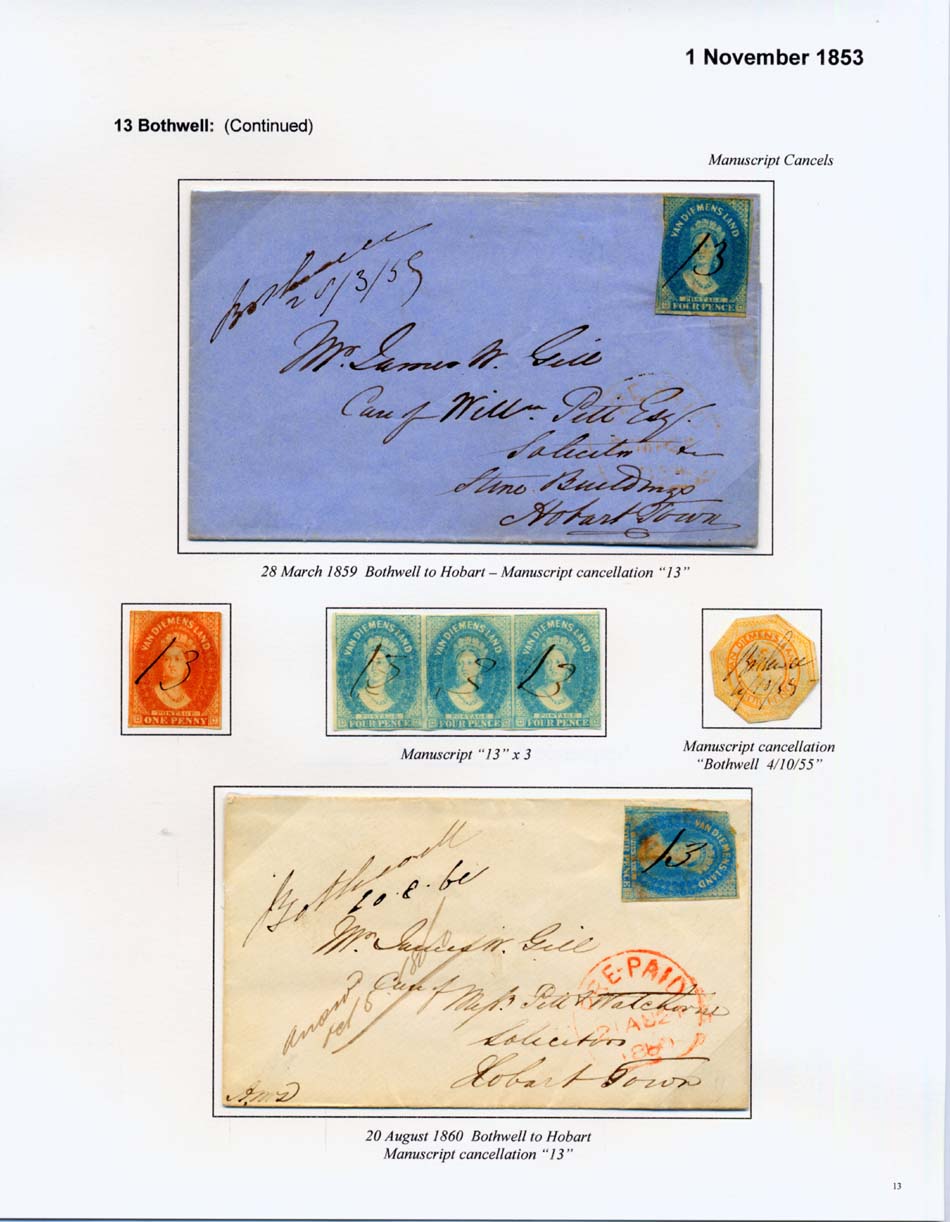 1 November 1853
13 Bothwell: (Continued)
Manuscript Cancels
VAN DIEMENS LAND
13
POSTAGE
FOUR PENCE
Bothwell
28/3/59
Mr. James W. Gill
Care of Willm Pitt Esq.
Solicitor &c
Stone Buildings
Hobart Town
28 March 1859 Bothwell to Hobart – Manuscript cancellation "13"
VAN DIEMENS LAND
13
POSTAGE
ONE PENNY
VAN DIEMENS LAND VAN DIEMENS LAND VAN DIEMENS LAND
13 13 13
POSTAGE POSTAGE POSTAGE
FOUR PENCE FOUR PENCE FOUR PENCE
VAN DIEMENS LAND
Bothwell
Manuscript "13" x 3
Manuscript cancellation
"Bothwell 4/10/55"
VAN DIEMENS LAND
13
FOUR PENCE
Bothwell
20.8.60
Mr. James W. Gill
Care of Messrs Pitt & Watchorne
Solicitors
Hobart Town
PRE-PAID
21 AU 21
1860
20 August 1860 Bothwell to Hobart
Manuscript cancellation "13"
13